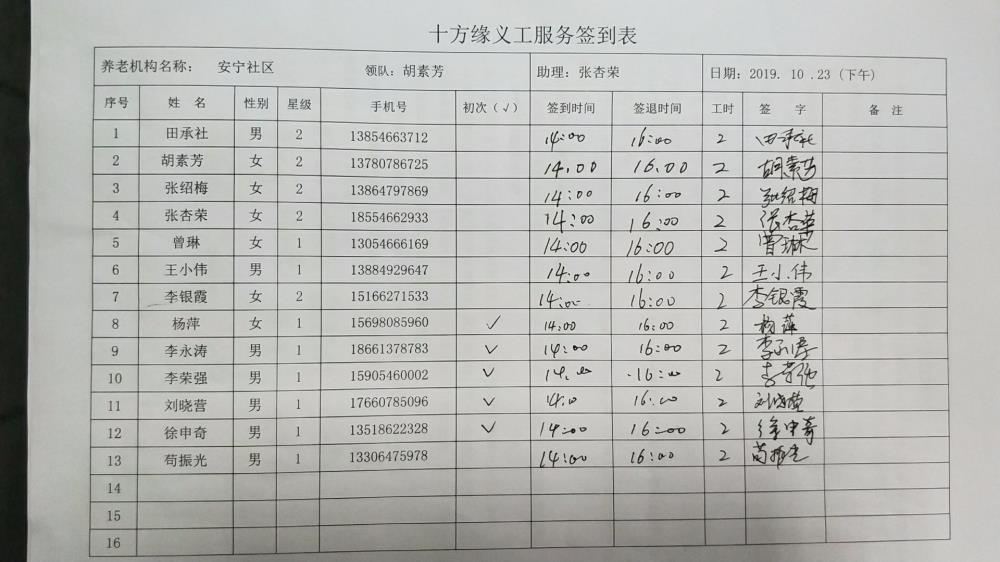 十方缘义工服务签到表
养老机构名称： 安宁社区 领队：胡素芳 助理：张杏荣 日期：2019. 10 .23（下午）
序号 姓 名 性别 星级 手机号 初次（√） 签到时间 签退时间 工时 签 字 备 注
1 田承社 男 2 13854663712 14:00 16:00 2 田承社
2 胡素芳 女 2 13780786725 14.00 16.00 2 胡素芳
3 张绍梅 女 2 13864797869 14:00 16:00 2 张绍梅
4 张杏荣 女 2 18554662933 14:00 16:00 2 张杏荣
5 曾琳 女 1 13054666169 14:00 16:00 2 曾琳
6 王小伟 男 1 13884929647 14:00 16:00 2 王小伟
7 李银霞 女 2 15166271533 14:00 16:00 2 李银霞
8 杨萍 女 1 15698085960 √ 14:00 16:00 2 杨萍
9 李永涛 男 1 18661378783 √ 14:00 16:00 2 李永涛
10 李荣强 男 1 15905460002 √ 14.00 16:00 2 李荣强
11 刘晓营 男 1 17660785096 √ 14:0 16:00 2 刘晓营
12 徐申奇 男 1 13518622328 √ 14:00 16:00 2 徐申奇
13 苟振光 男 1 13306475978 14:00 16:00 2 苟振光
14
15
16